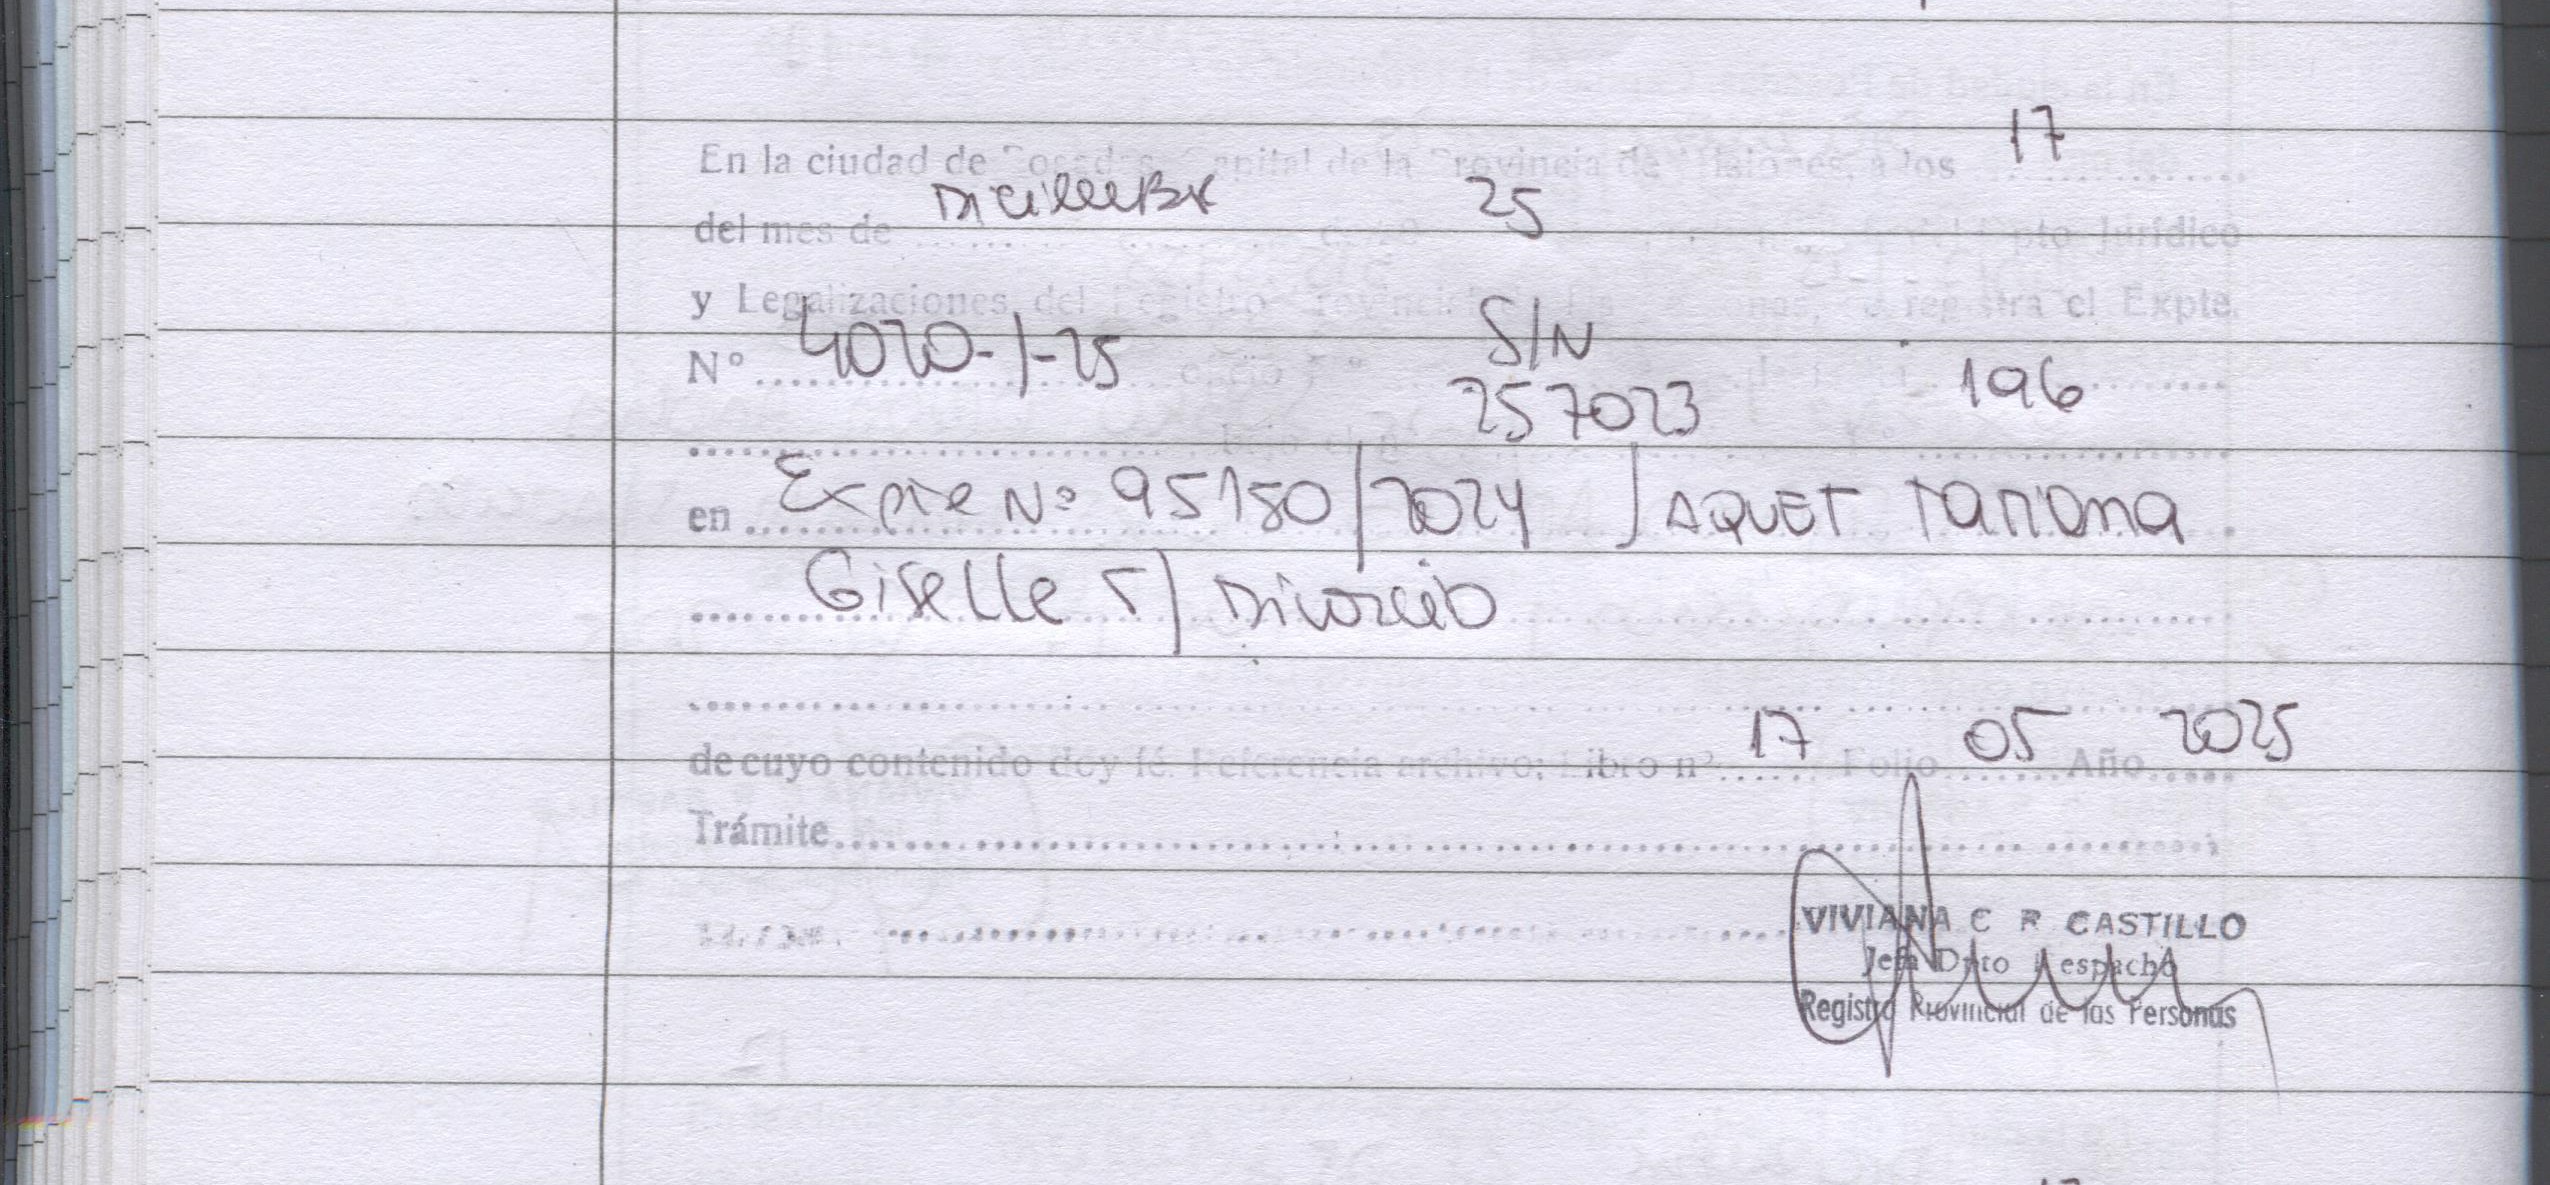 17
En la ciudad de Posadas, Capital de la Provincia de Misiones, a los
Diciembre 25
del mes de Dpto Jurídico
y Legalizaciones del Registro Provincial se registra el Expte.
Nº 4020-1-25 S/N
oficio 257023 196
en Expte Nº 95180/2024 JAQUET Tatiana
Giselle S/ Divorcio
17 05 2025
de cuyo contenido doy fé. Referencia archivo: Libro nº Folio Año
Trámite
VIVIANA C R CASTILLO
Jefa Dpto Despacho
Registro Provincial de las Personas